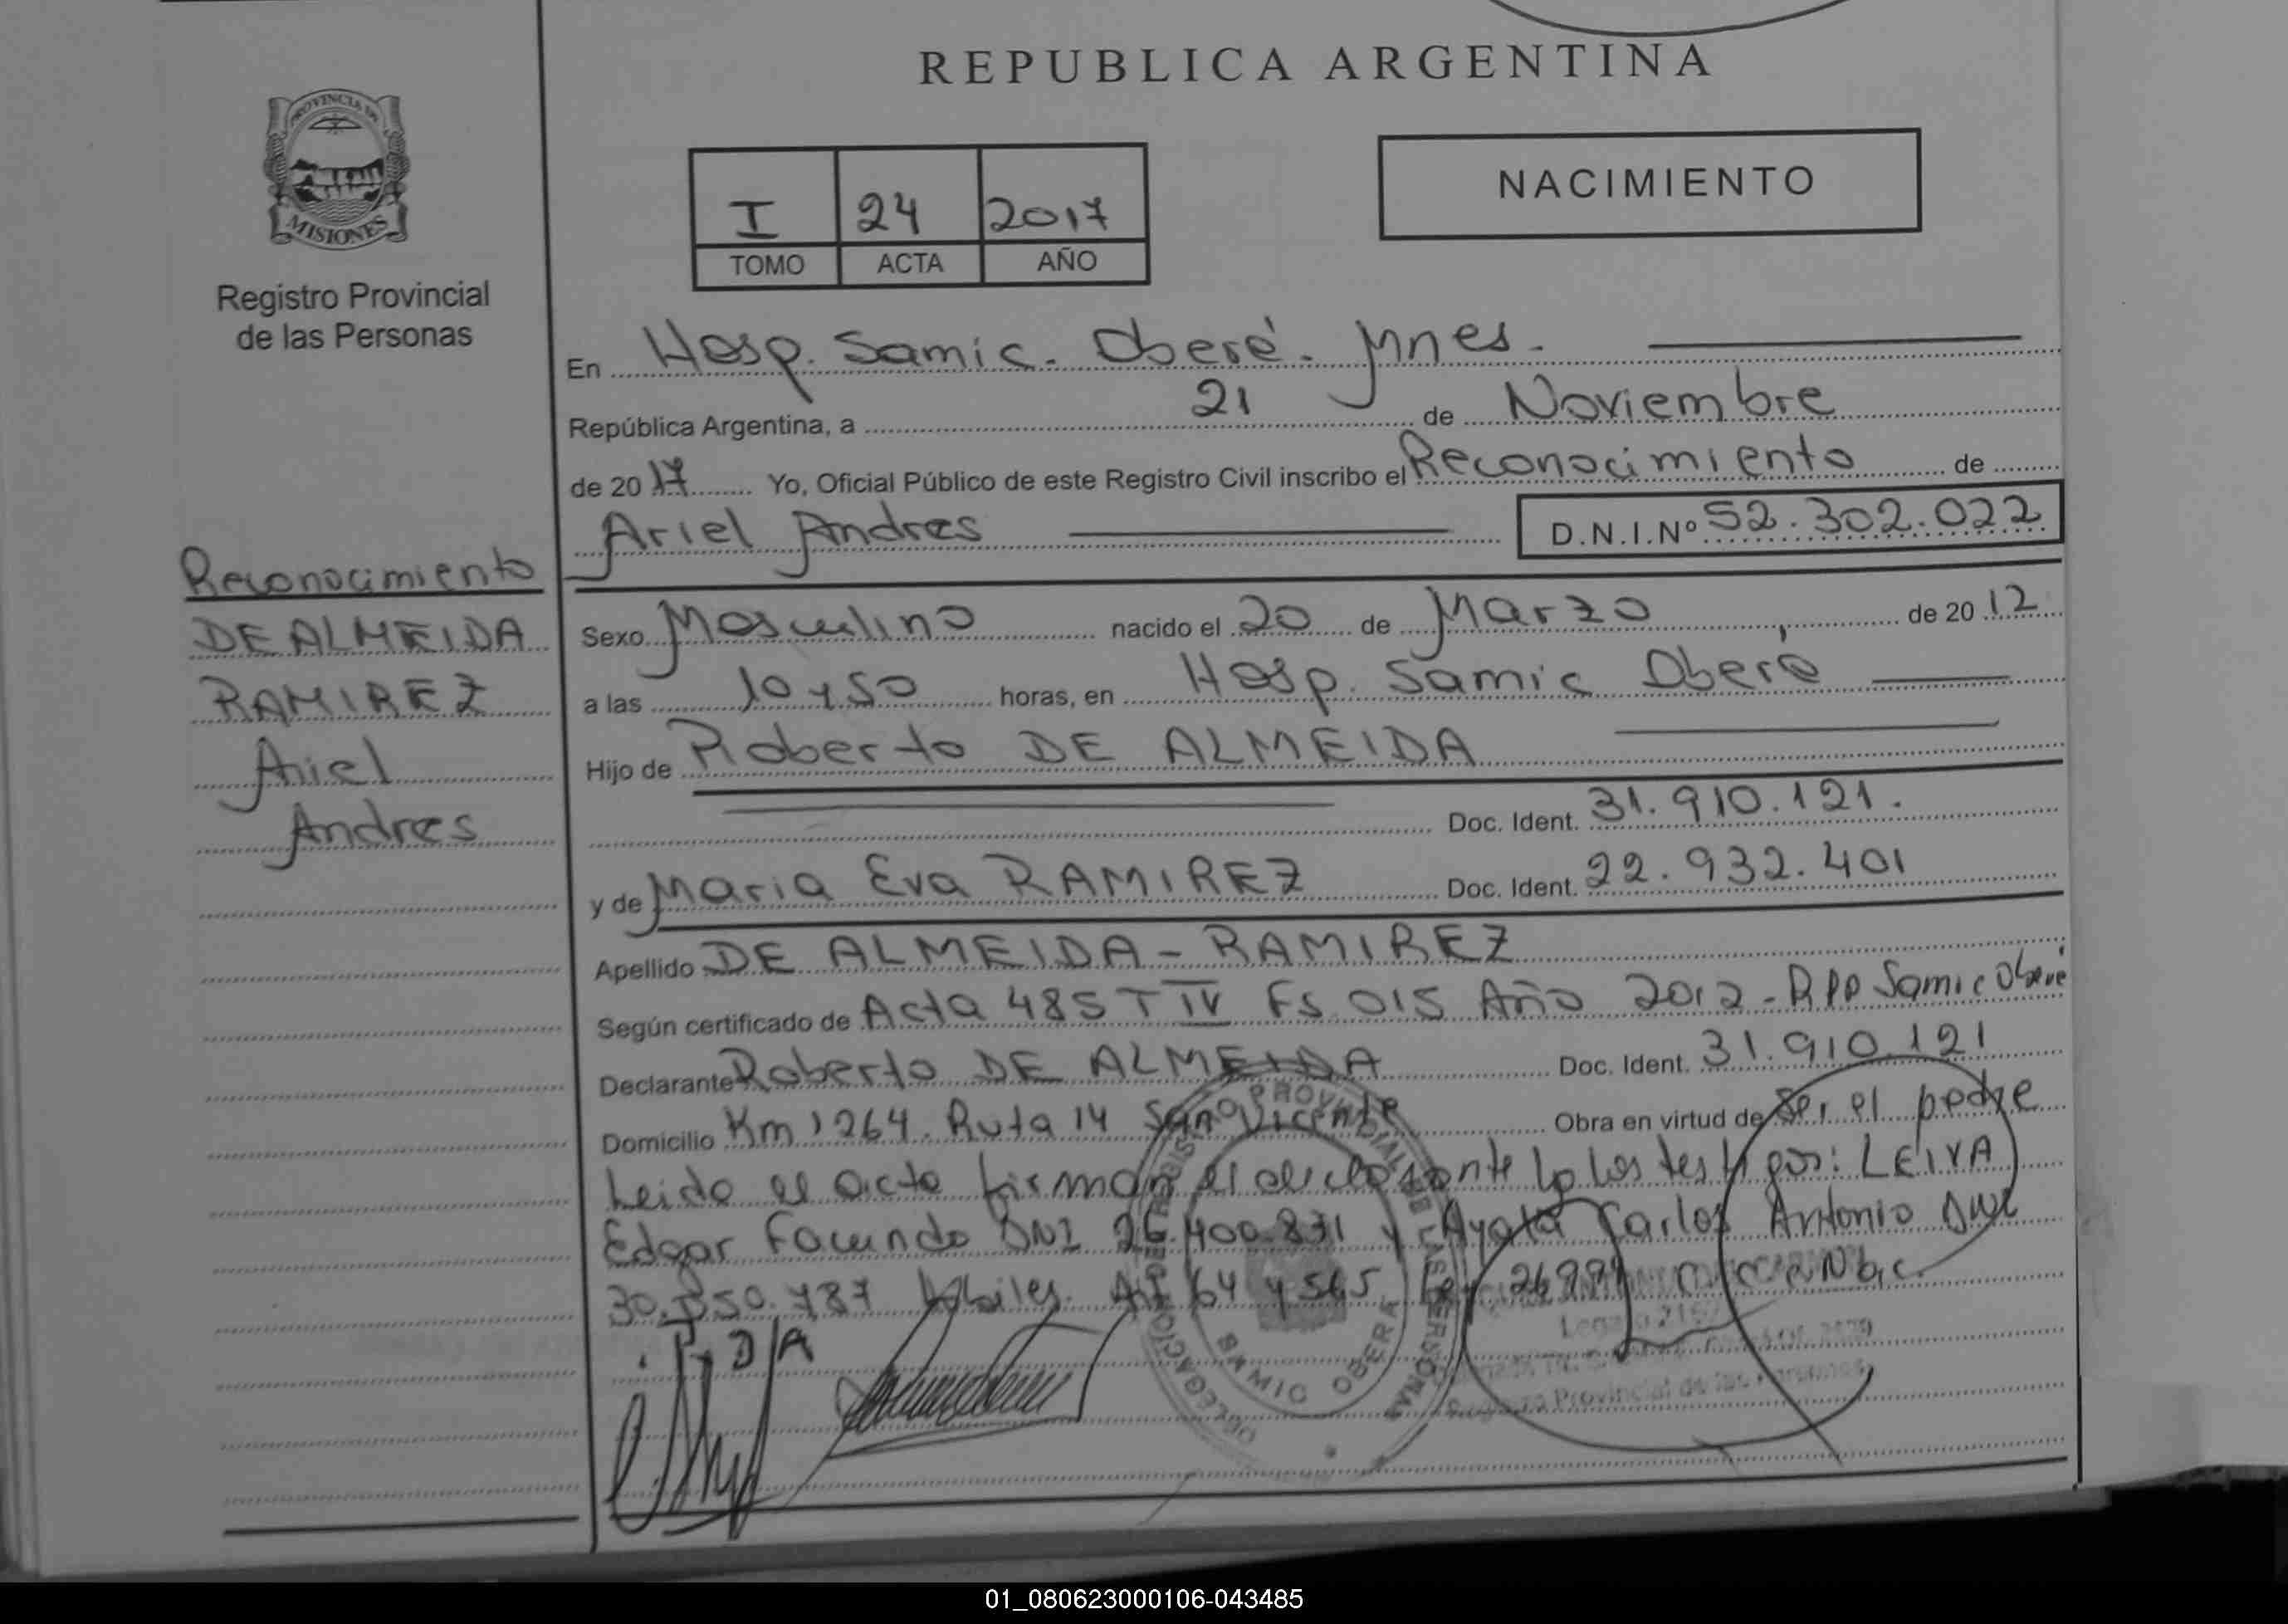 REPUBLICA ARGENTINA
PROVINCIA DE
MISIONES
Registro Provincial
de las Personas
I 24 2017
TOMO ACTA AÑO
NACIMIENTO
En Hosp. Samic. Oberá. Mnes.
República Argentina, a 21 de Noviembre
de 2017 Yo, Oficial Público de este Registro Civil inscribo el Reconocimiento de
Ariel Andres D.N.I.Nº 52.302.022
Reconocimiento
DE ALMEIDA
RAMIREZ
Ariel
Andres
Sexo Masculino nacido el 20 de Marzo de 2012
a las 10 y 50 horas, en Hosp. Samic Oberá
Hijo de Roberto DE ALMEIDA
Doc. Ident. 31.910.121.
y de Maria Eva RAMIREZ Doc. Ident. 22.932.401
Apellido DE ALMEIDA - RAMIREZ
Según certificado de Acta 485 T IV Fs 015 Año 2012 - RPP Samic Oberá
Declarante Roberto DE ALMEIDA Doc. Ident. 31.910.121
Domicilio Km 1264. Ruta 14 San Vicente Obra en virtud de Ser el padre
Leido el acta firman el declarante y los testigos: LEIVA
Edgar Facundo DNI 26.400.831 y Ayala Carlos Antonio DNI
30. 787 habiles. Art 64 y 565 Ley 26994
REGISTRO PROVINCIAL DE LAS PERSONAS
DELEGACION
SAMIC OBERA
Registro Provincial de las Personas
01_080623000106-043485